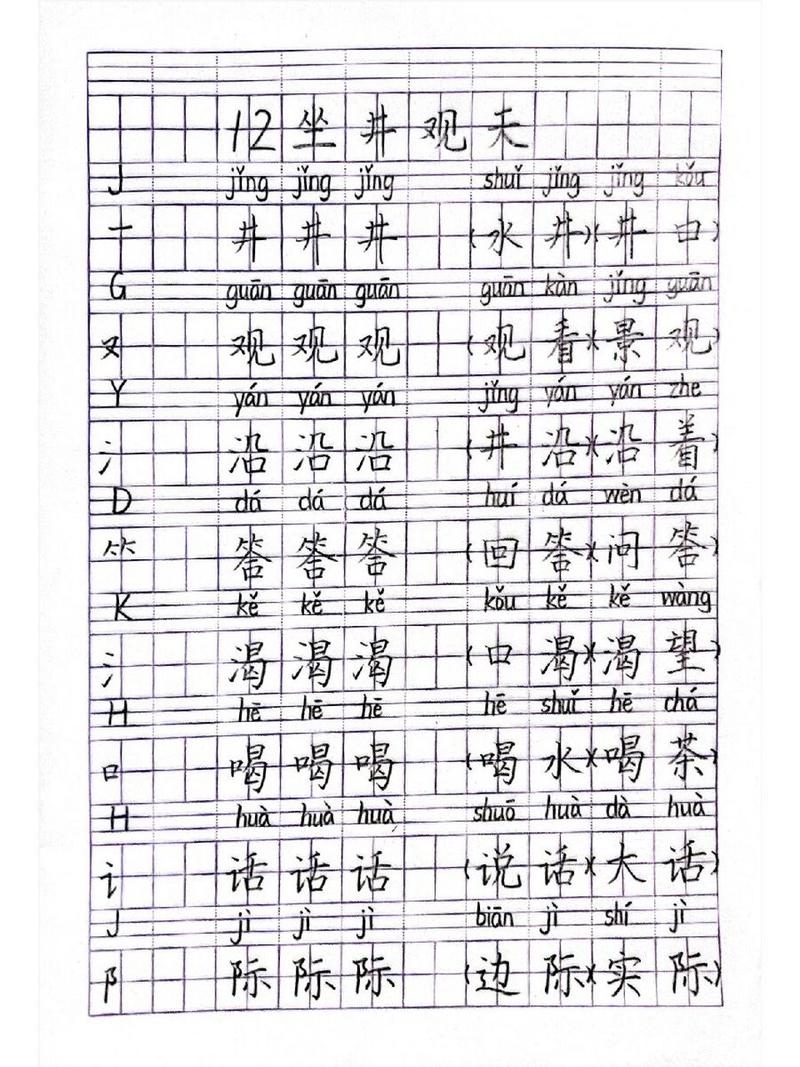 12 坐井观天
J jǐng jǐng jǐng shuǐ jǐng jǐng kǒu
一 井 井 井 (水井)(井口)
G guān guān guān guān kàn jǐng guān
又 观 观 观 (观看)(景观)
Y yán yán yán jǐng yán yán zhe
氵 沿 沿 沿 (井沿)(沿着)
D dá dá dá huí dá wèn dá
⺮ 答 答 答 (回答)(问答)
K kě kě kě kǒu kě kě wàng
氵 渴 渴 渴 (口渴)(渴望)
H hē hē hē hē shuǐ hē chá
口 喝 喝 喝 (喝水)(喝茶)
H huà huà huà shuō huà dà huà
讠 话 话 话 (说话)(大话)
J jì jì jì biān jì shí jì
阝 际 际 际 (边际)(实际)